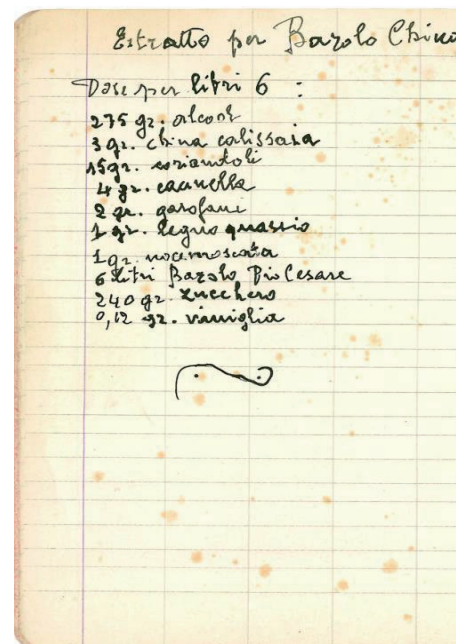 Estratto per Barolo Chinat
Dose per litri 6 :
275 gr. alcool
3 gr. china calissaia
15 gr. coriandoli
4 gr. cannella
2 gr. garofani
1 gr. legno quassio
1 gr. nocemoscata
6 litri Barolo Pio Cesare
240 gr. zucchero
0,12 gr. vaniglia